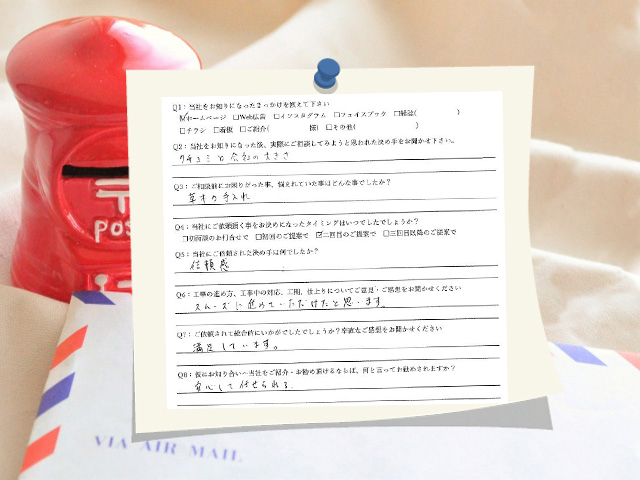 Q1：当社をお知りになったきっかけを教えて下さい
☑ホームページ □Web広告 □インスタグラム □フェイスブック □雑誌( )
□チラシ □看板 □ご紹介( 様) □その他( )
Q2：当社をお知りになった後、実際にご相談してみようと思われた決め手をお聞かせ下さい。
クチコミと会社の大きさ
Q3：ご相談前にお困りだった事、悩まれていた事はどんな事でしたか？
草木の手入れ
Q4：当社にご依頼頂く事をお決めになったタイミングはいつでしたでしょうか？
□初面談のお打合せで □初回のご提案で ☑二回目のご提案で □三回目以降のご提案で
Q5：当社にご依頼された決め手は何でしたか？
信頼感
Q6：工事の進め方、工事中の対応、工期、仕上りについてご意見・ご感想をお聞かせください
スムーズに進めていただけたと思います。
Q7：ご依頼されて総合的にいかがでしたでしょうか？率直なご感想をお聞かせください
満足しています。
Q8：仮にお知り合いへ当社をご紹介・お勧め頂けるならば、何と言ってお勧めされますか？
安心して任せられる
POS
VIA AIR MAIL